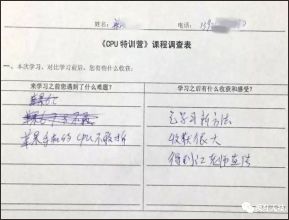 姓名:
电话:
《CPU特训营》课程调查表
一、本次学习,对比学习前后,您有些什么收获:
来学习之前您遇到了什么难题?
学习之后有什么收获和感受?
苹果手机的CPU不敢拆
已学习新方法
收获很大
得到江老师真传